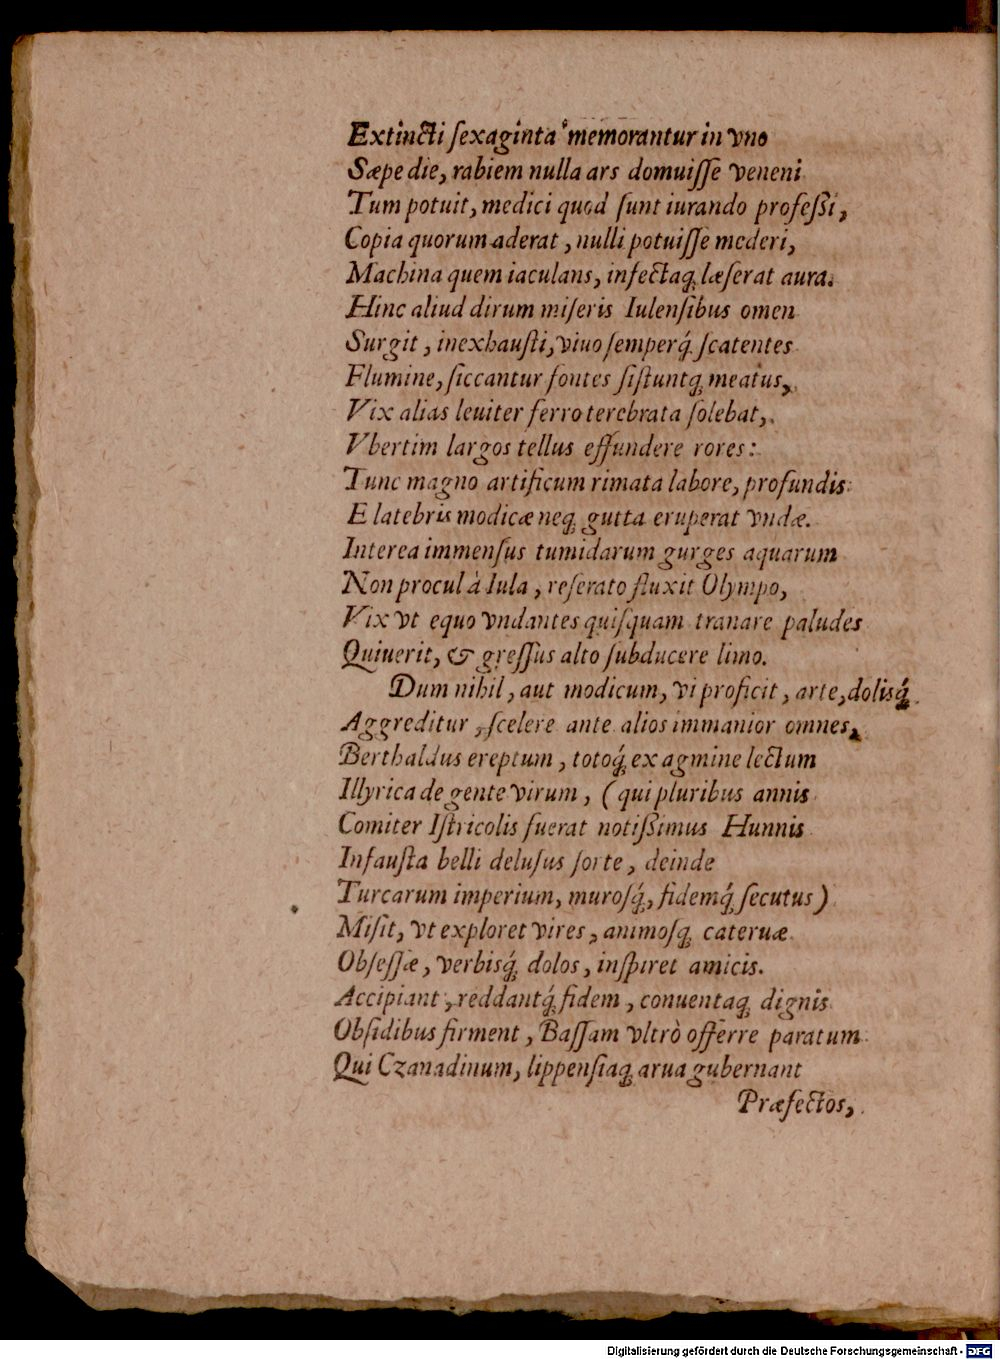 Extincti ſexaginta memorantur in vno
Sæpe die, rabiem nulla ars domuiſſe veneni
Tum potuit, medici quod ſunt iurando profeſſi,
Copia quorum aderat, nulli potuiſſe mederi,
Machina quem iaculans, infectaq; læſerat aura.
Hinc aliud dirum miſeris Iulenſibus omen
Surgit, inexhauſti, viuo ſemperq́; ſcatentes
Flumine, ſiccantur fontes ſiſtuntq; meatus,
Vix alias leuiter ferro terebrata ſolebat,
Vbertim largos tellus effundere rores:
Tunc magno artificum rimata labore, profundis
E latebris modicæ neq; gutta eruperat vndæ.
Interea immenſus tumidarum gurges aquarum
Non procul à Iula, reſerato fluxit Olympo,
Vix vt equo vndantes quiſquam tranare paludes
Quiuerit, & greſſus alto ſubducere limo.
Dum nihil, aut modicum, vi proficit, arte, dolisq́;
Aggreditur, ſcelere ante alios immanior omnes,
Berthaldus ereptum, totoq́; ex agmine lectum
Illyrica de gente virum, (qui pluribus annis
Comiter Iſtricolis fuerat notiſſimus Hunnis
Infauſta belli deluſus ſorte, deinde
Turcarum imperium, muroſq́;, fidemq́; ſecutus)
Miſit, vt exploret vires, animoſq; cateruæ
Obſeſſæ, verbisq́; dolos, inſpiret amicis.
Accipiant, reddantq́; fidem, conuentaq; dignis
Obſidibus firment, Baſſam vltrò offerre paratum
Qui Czanadinum, lippenſiaq; arua gubernant
Præfectos,
Digitalisierung gefördert durch die Deutsche Forschungsgemeinschaft - DFG